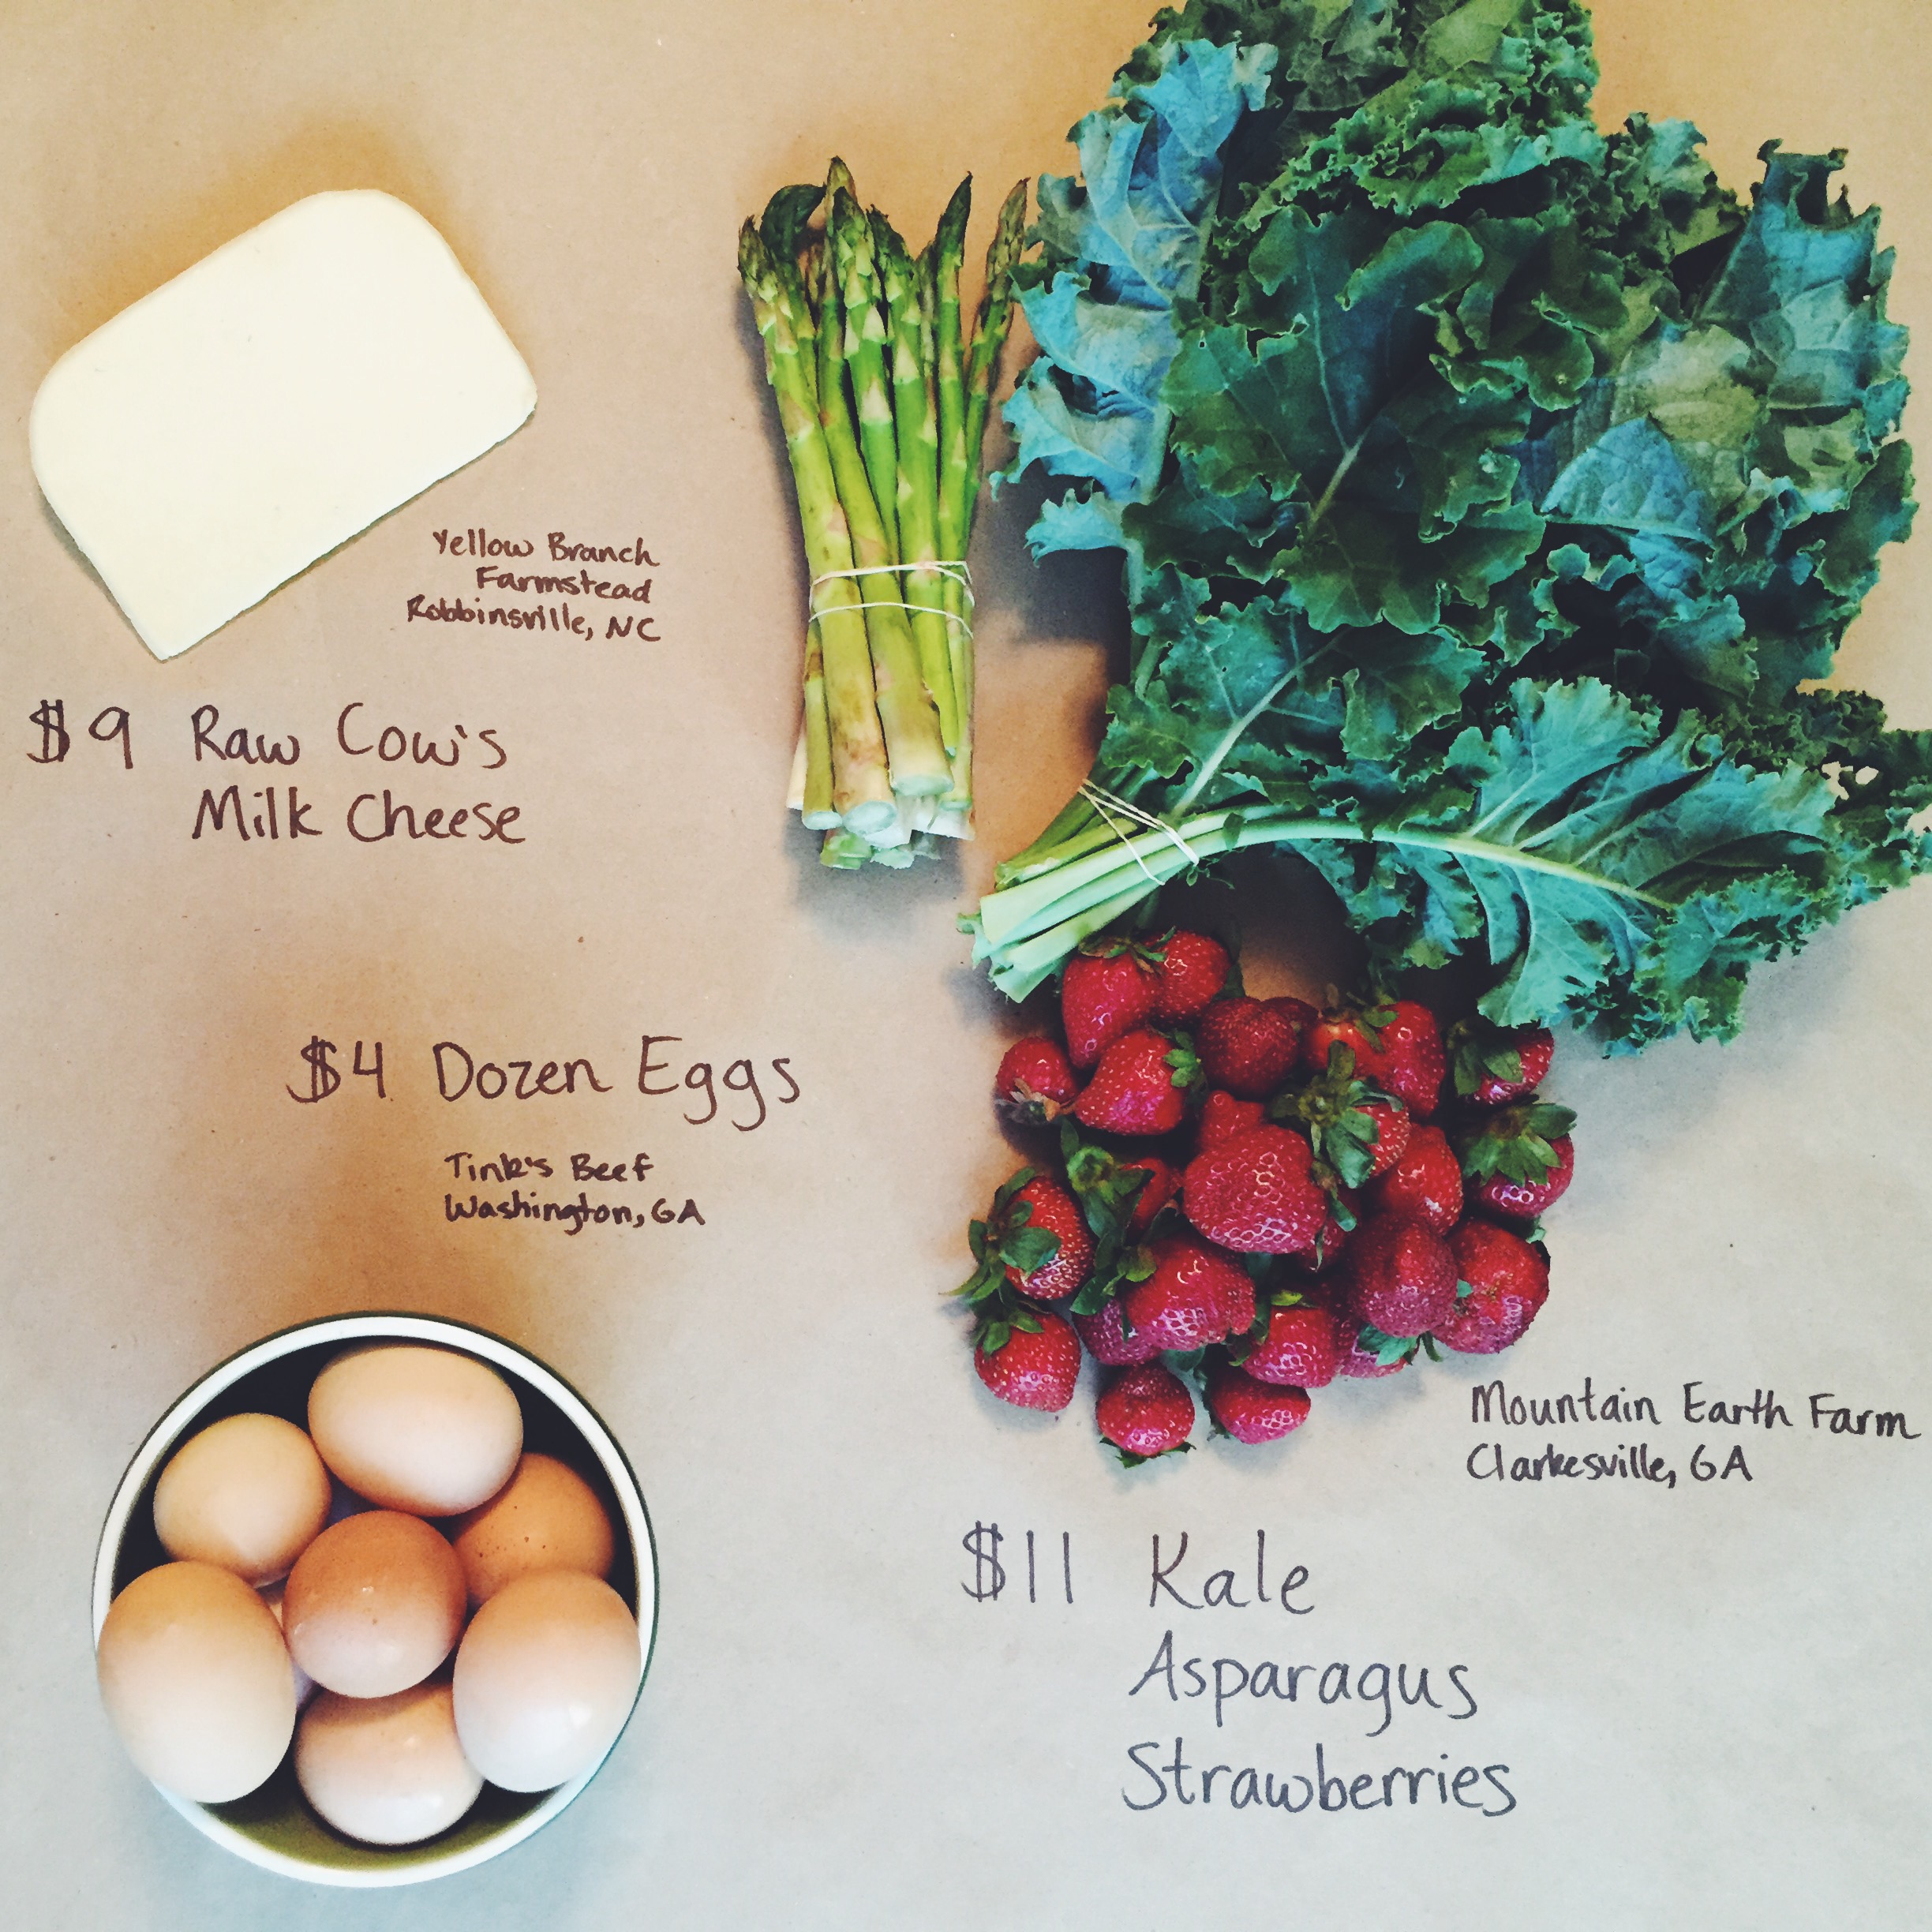 Yellow Branch
Farmstead
Robbinsville, NC
$9 Raw Cow's
Milk Cheese
$4 Dozen Eggs
Tink's Beef
Washington, GA
Mountain Earth Farm
Clarkesville, GA
$11 Kale
Asparagus
Strawberries